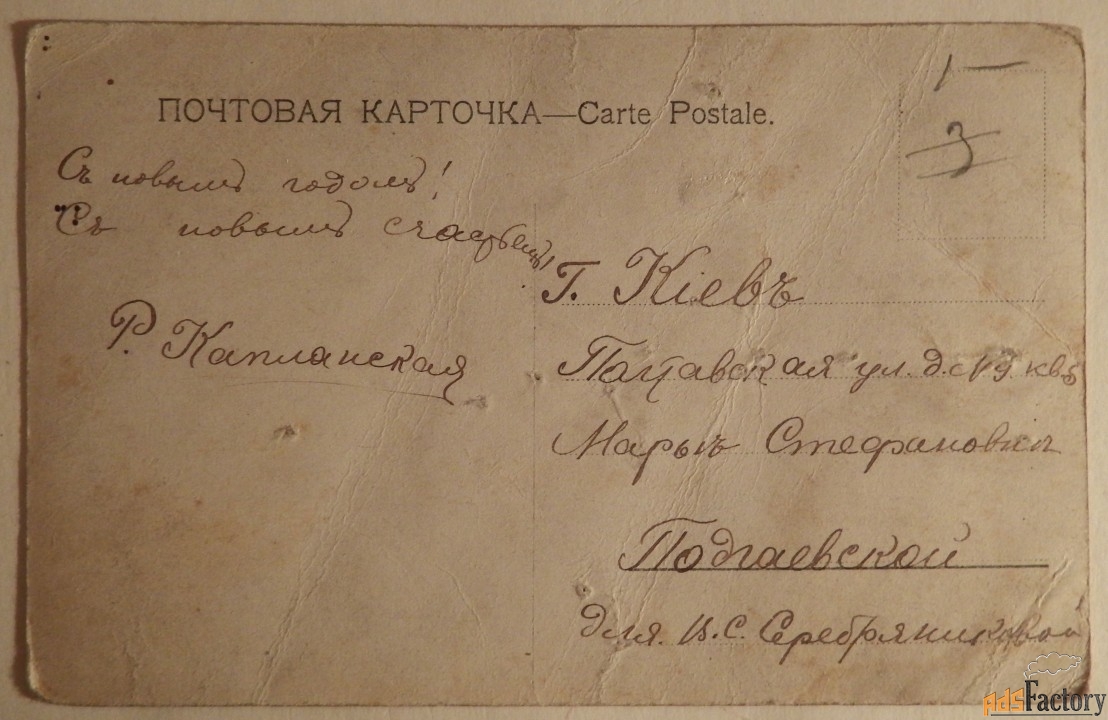 ПОЧТОВАЯ КАРТОЧКА—Carte Postale.
1
3
Съ новымъ годомъ!
Съ новымъ счастьемъ!
Р. Капланская
Г. Кіевъ
Полтавская ул. д. № 9 кв 5
Марьѣ Стефановнѣ
Подгаевской
для В. С. Серебряниковой
adsFactory